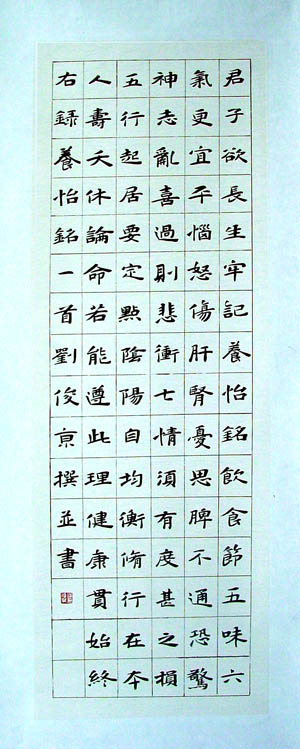 君子欲長生牢記養怡銘飲食節五味六
氣更宜平惱怒傷肝腎憂思脾不通恐驚
神志亂喜過則悲衝七情須有度甚之損
五行起居要定點陰陽自均衡脩行在本
人壽夭休論命若能遵此理健康貫始終
右録養怡銘一首劉俊亰撰並書